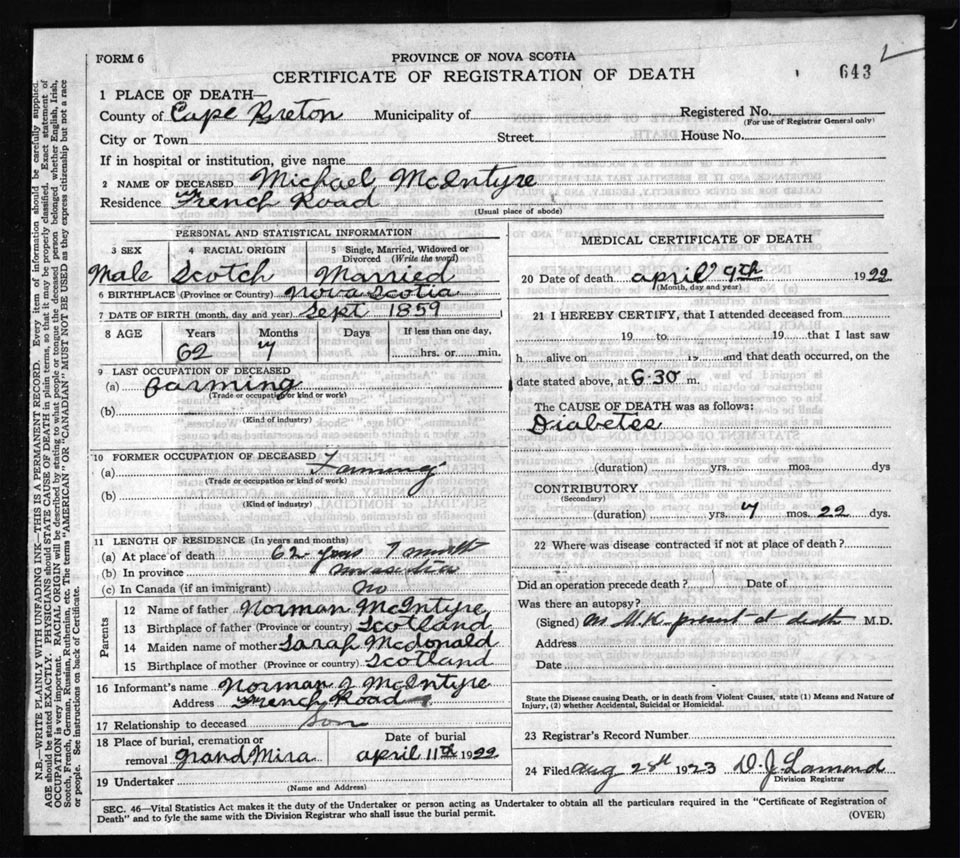 FORM 6
PROVINCE OF NOVA SCOTIA
CERTIFICATE OF REGISTRATION OF DEATH
643
1 PLACE OF DEATH—
County of Cape Breton Municipality of Registered No.
(For use of Registrar General only)
City or Town Street House No.
If in hospital or institution, give name
2 NAME OF DECEASED Michael McIntyre
Residence French Road
(Usual place of abode)
PERSONAL AND STATISTICAL INFORMATION
3 SEX 4 RACIAL ORIGIN 5 Single, Married, Widowed or Divorced (Write the word)
Male Scotch Married
6 BIRTHPLACE (Province or Country) Nova Scotia
7 DATE OF BIRTH (month, day and year) Sept 1859
8 AGE Years Months Days If less than one day,
62 7 hrs. or min.
9 LAST OCCUPATION OF DECEASED
(a) Farming
(Trade or occupation or kind or work)
(b)
(Kind of industry)
10 FORMER OCCUPATION OF DECEASED
(a) Farming
(Trade or occupation or kind or work)
(b)
(Kind of industry)
11 LENGTH OF RESIDENCE (In years and months)
(a) At place of death 62 years 7 months
(b) In province Nova Scotia
(c) In Canada (if an immigrant) No
Parents
12 Name of father Norman McIntyre
13 Birthplace of father (Province or country) Scotland
14 Maiden name of mother Sarah Mcdonald
15 Birthplace of mother (Province or country) Scotland
16 Informant's name Norman J McIntyre
Address French Road
17 Relationship to deceased Son
18 Place of burial, cremation or removal Grand Mira
Date of burial april 11th 1922
19 Undertaker
(Name and Address)
MEDICAL CERTIFICATE OF DEATH
20 Date of death april 9th 1922
(Month, day and year)
21 I HEREBY CERTIFY, that I attended deceased from
19 to 19 that I last saw
h alive on 19 and that death occurred, on the
date stated above, at 6.30 m.
The CAUSE OF DEATH was as follows:
Diabetes
(duration) yrs. mos. dys
CONTRIBUTORY
(Secondary)
(duration) yrs. 7 mos. 22 dys.
22 Where was disease contracted if not at place of death?
Did an operation precede death? Date of
Was there an autopsy?
(Signed) present at death M.D.
Address
Date
State the Disease causing Death, or in death from Violent Causes, state (1) Means and Nature of
Injury, (2) whether Accidental, Suicidal or Homicidal.
23 Registrar's Record Number
24 Filed Aug 28th 1923 D. J Lamond
Division Registrar
SEC. 46—Vital Statistics Act makes it the duty of the Undertaker or person acting as Undertaker to obtain all the particulars required in the "Certificate of Registration of
Death" and to fyle the same with the Division Registrar who shall issue the burial permit.
(OVER)
N.B.—WRITE PLAINLY WITH UNFADING INK—THIS IS A PERMANENT RECORD. Every item of information should be carefully supplied.
AGE should be stated EXACTLY. PHYSICIANS should STATE CAUSE OF DEATH in plain terms, so that it may be properly classified. Exact statement of
OCCUPATION is very important. RACIAL ORIGIN will be described by stating to what people or tongue the deceased person belonged whether English, Irish,
Scotch, French, German, Russian, Ruthenian, etc. The terms "AMERICAN" OR "CANADIAN" MUST NOT BE USED as they express citizenship but not a race
or people. See instructions on back of Certificate.